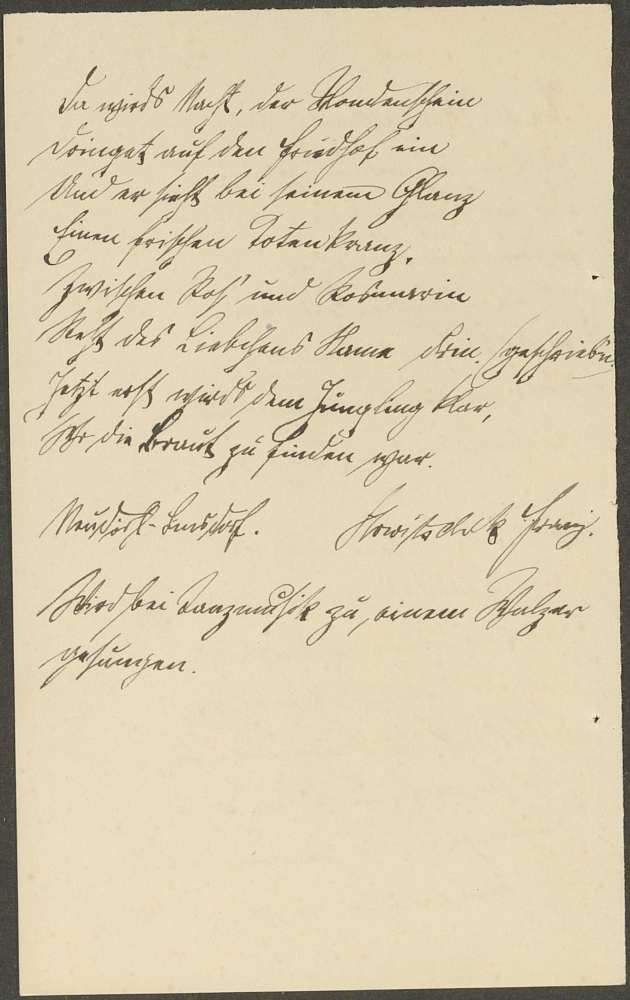 Da wirds Nacht, der Mondenschein
Dringet auf den Friedhof ein
Und er sieht bei seinem Glanz
Einen frischen Totenkranz.
Zwischen Ros' und Rosmarin
Steht des Liebchens Name drin. (geschrieb'n)
Jetzt erst wirds dem Jüngling klar,
Wo die Braut zu finden war.
Neudörfl- Franz.
Wird bei Tanzmusik zu einem Walzer
gesungen.